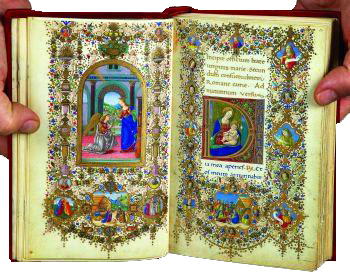 Incipit officium beate
virginis marie secun
dum consuetudinem
Romane curie. Ad
matutinum versus.
ia mea aperies. Et
os meum annuntiabit